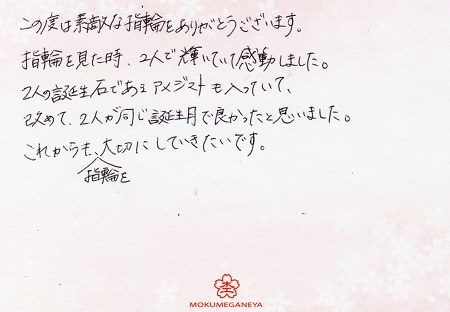 この度は素敵な指輪をありがとうございます。
指輪を見た時、2人で輝いていて感動しました。
2人の誕生石であるアメジストも入っていて、
改めて、2人が同じ誕生月で良かったと思いました。
これからも、大切にしていきたいです。
指輪を
MOKUMEGANEYA